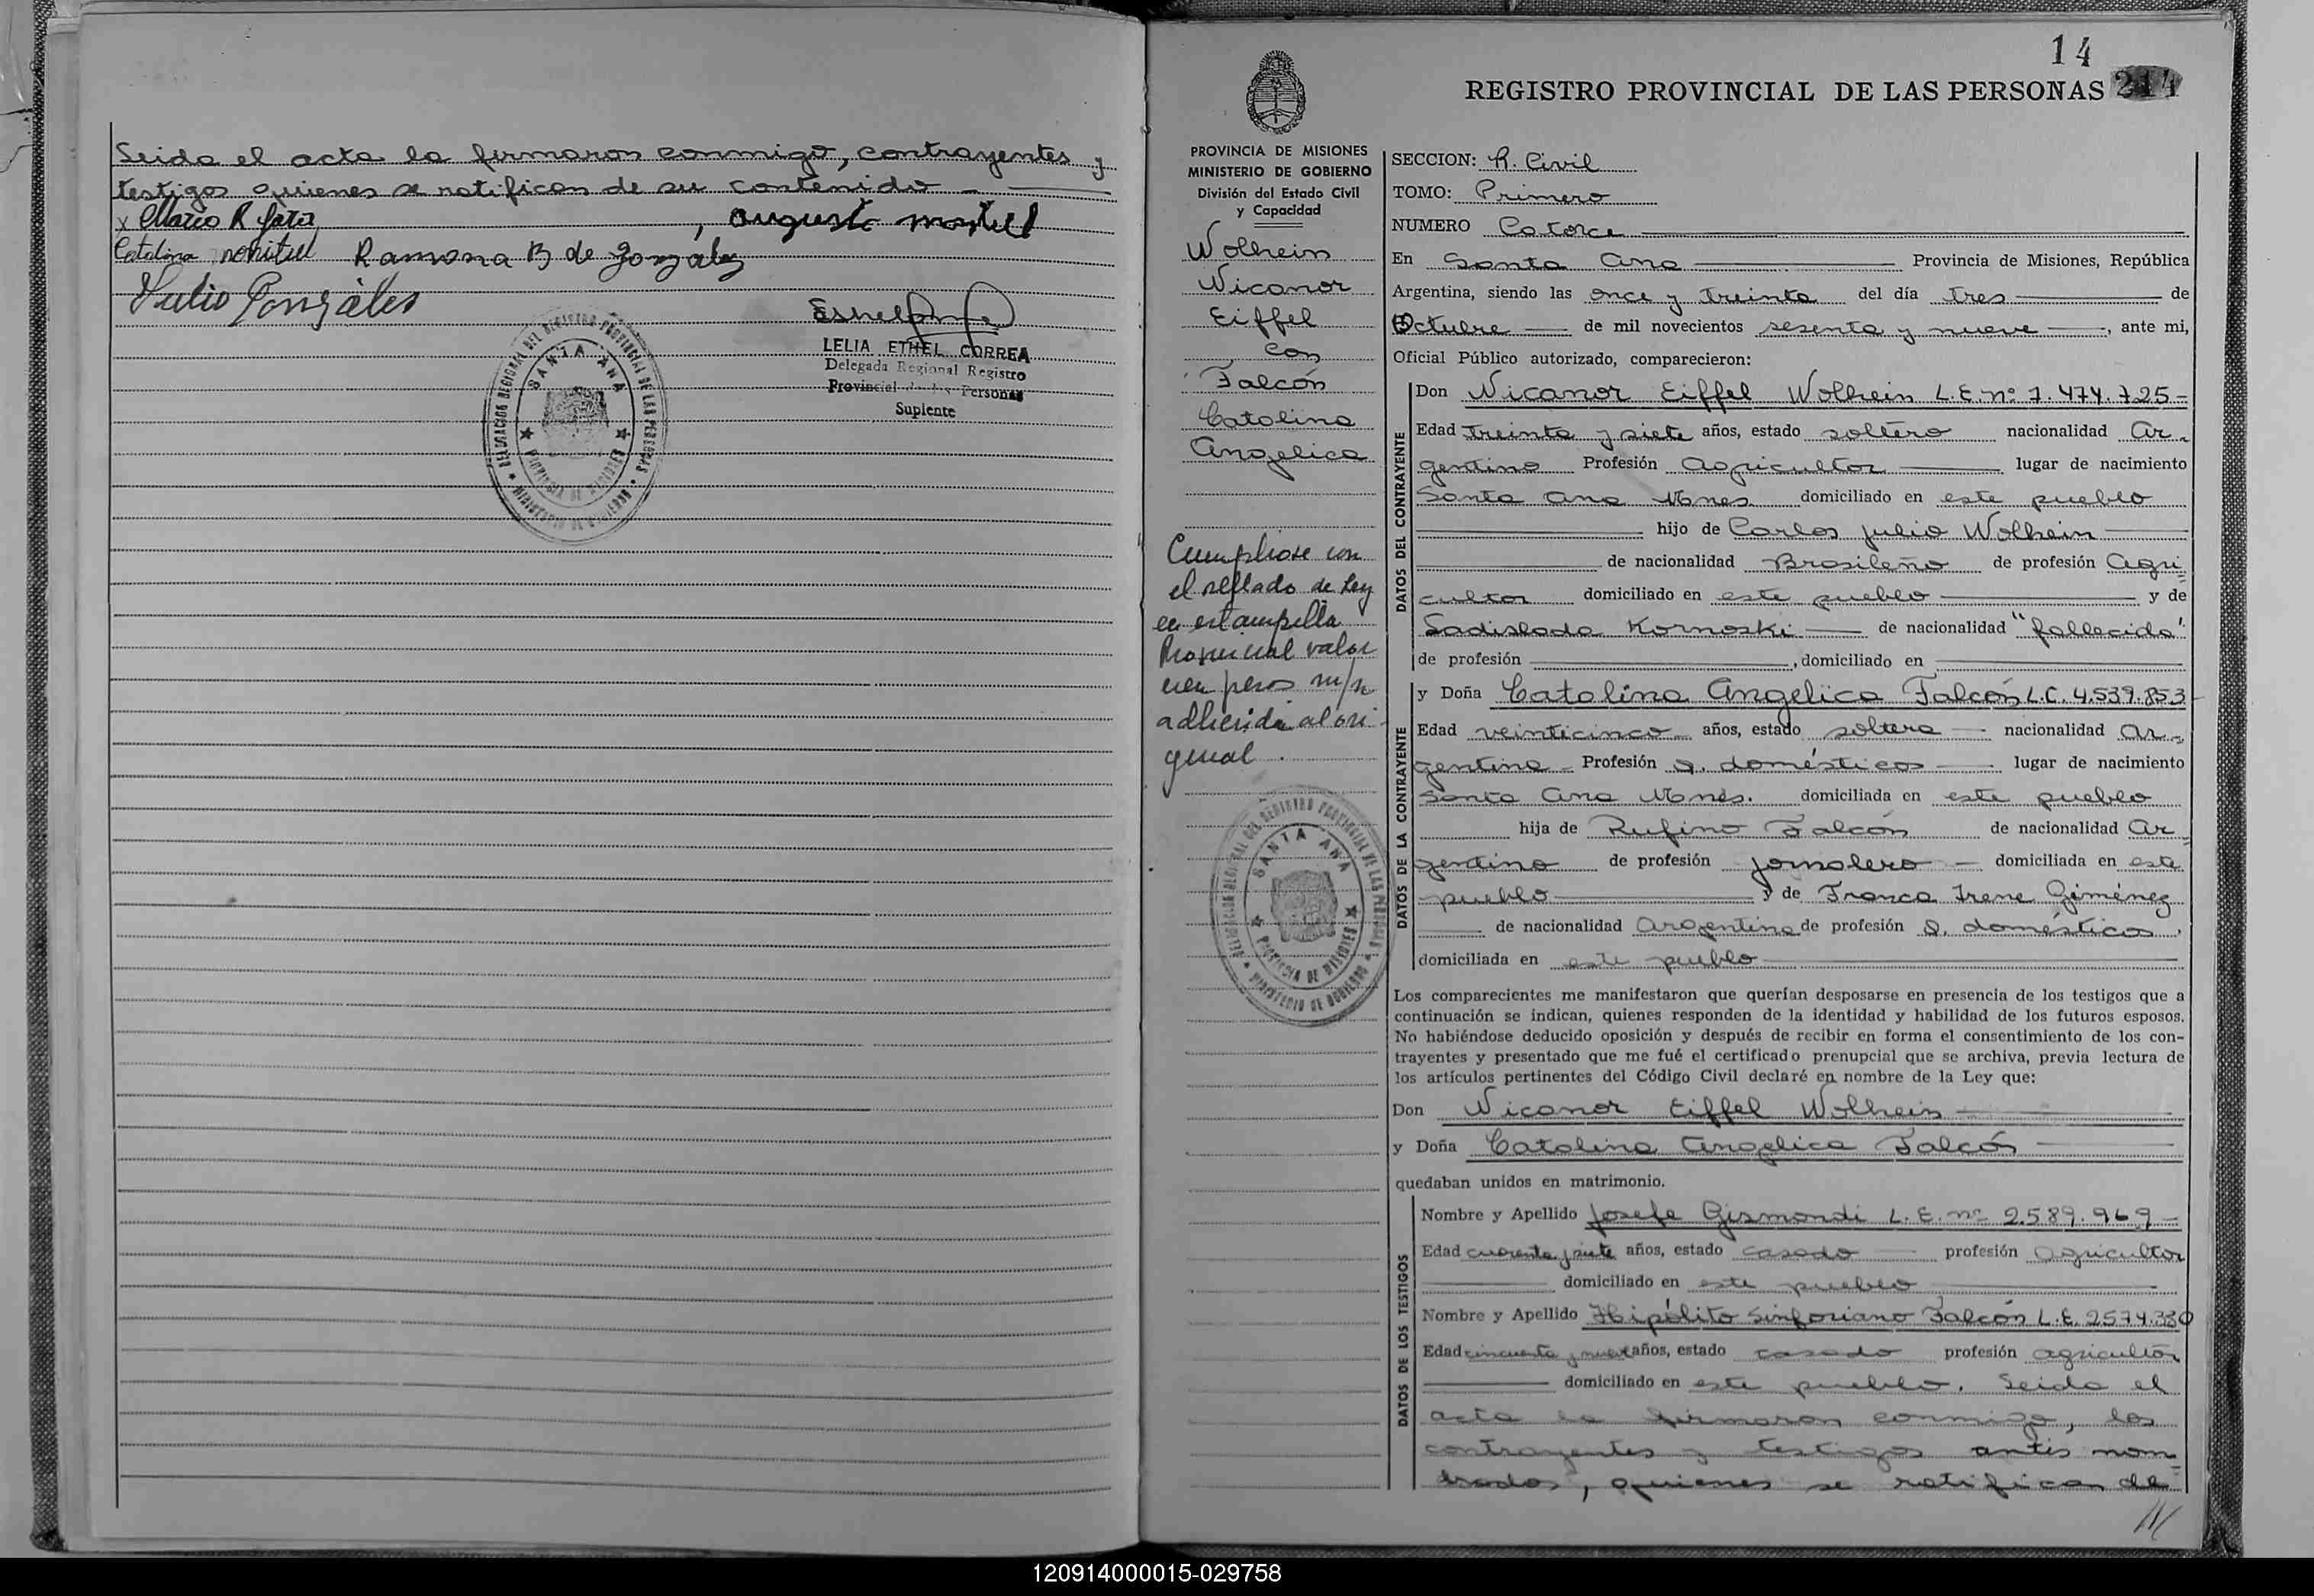 Leida el acta la firmaron conmigo, contrayentes y
testigos quienes se ratifican de su contenido
x Mario R
, augusto montiel
Catalina montiel Ramona B de Gonzalez
Julio Gonzáles
LELIA ETHEL CORREA
Delegada Regional Registro
Provincial de las Personas
Suplente
DELEGACION REGIONAL DEL REGISTRO PROVINCIAL DE LAS PERSONAS
SANTA ANA
PROVINCIA DE MISIONES
MINISTERIO DE GOBIERNO
14
REGISTRO PROVINCIAL DE LAS PERSONAS 214
PROVINCIA DE MISIONES
MINISTERIO DE GOBIERNO
División del Estado Civil
y Capacidad
Wolhein
Nicanor
Eiffel
con
Falcón
Catalina
Angelica
Cumpliose con
el sellado de Ley
en estampilla
Provincial valor
cien pesos m/n
adherida al ori-
ginal.
DELEGACION REGIONAL DEL REGISTRO PROVINCIAL DE LAS PERSONAS
SANTA ANA
PROVINCIA DE MISIONES
MINISTERIO DE GOBIERNO
SECCION: R. Civil
TOMO: Primero
NUMERO Catorce
En Santa Ana Provincia de Misiones, República
Argentina, siendo las once y treinta del día tres de
Octubre de mil novecientos sesenta y nueve, ante mi,
Oficial Público autorizado, comparecieron:
DATOS DEL CONTRAYENTE
Don Nicanor Eiffel Wolhein L.E. nº 7.474.725-
Edad treinta y siete años, estado soltero nacionalidad Ar-
gentino Profesión Agricultor lugar de nacimiento
Santa Ana Mnes domiciliado en este pueblo
hijo de Carlos Julio Wolhein
de nacionalidad Brasileño de profesión Agri=
cultor domiciliado en este pueblo y de
Ladislada Kornoski de nacionalidad "fallecida"
de profesión , domiciliado en
DATOS DE LA CONTRAYENTE
y Doña Catalina Angelica Falcón L.C. 4.539.853-
Edad veinticinco años, estado soltera nacionalidad Ar-
gentina Profesión Q. domésticos lugar de nacimiento
Santa Ana Mnes. domiciliada en este pueblo
hija de Rufino Falcón de nacionalidad Ar-
gentino de profesión jornalero domiciliada en este
pueblo y de Franca Irene Giménez
de nacionalidad Argentina de profesión Q. domésticos,
domiciliada en este pueblo
Los comparecientes me manifestaron que querían desposarse en presencia de los testigos que a
continuación se indican, quienes responden de la identidad y habilidad de los futuros esposos.
No habiéndose deducido oposición y después de recibir en forma el consentimiento de los con-
trayentes y presentado que me fué el certificado prenupcial que se archiva, previa lectura de
los artículos pertinentes del Código Civil declaré en nombre de la Ley que:
Don Nicanor Eiffel Wolhein
y Doña Catalina Angelica Falcón
quedaban unidos en matrimonio.
DATOS DE LOS TESTIGOS
Nombre y Apellido Josefe Gismondi L.E. nº 2589.969-
Edad cuarenta y siete años, estado casado profesión Agricultor
domiciliado en este pueblo
Nombre y Apellido Hipólito Sinforiano Falcón L.E. 2574.330
Edad cincuenta y nueve años, estado casado profesión agricultor
domiciliado en este pueblo. Leida el
acta la firmaron conmigo, los
contrayentes y testigos antes nom=
brados, quienes se ratifican de
120914000015-029758